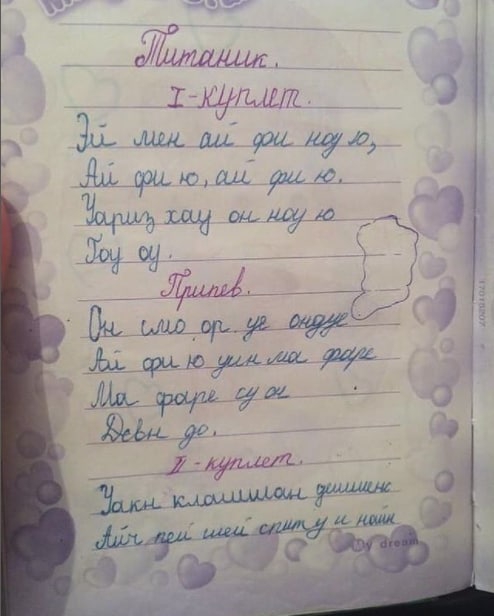 Титаник.
I-куплет.
Эй мен ай фи ноу ю,
Ай фи ю, ай фи ю.
Уариз хау он ноу ю
Гоу оу.
Припев.
Он смо ор уе ондуе
Ай фи ю уин ма фаре
Ма фаре су он
Девн до.
II-куплет.
Уакн клашиан
Айч пей шей спит у и найн
My dream
17018207